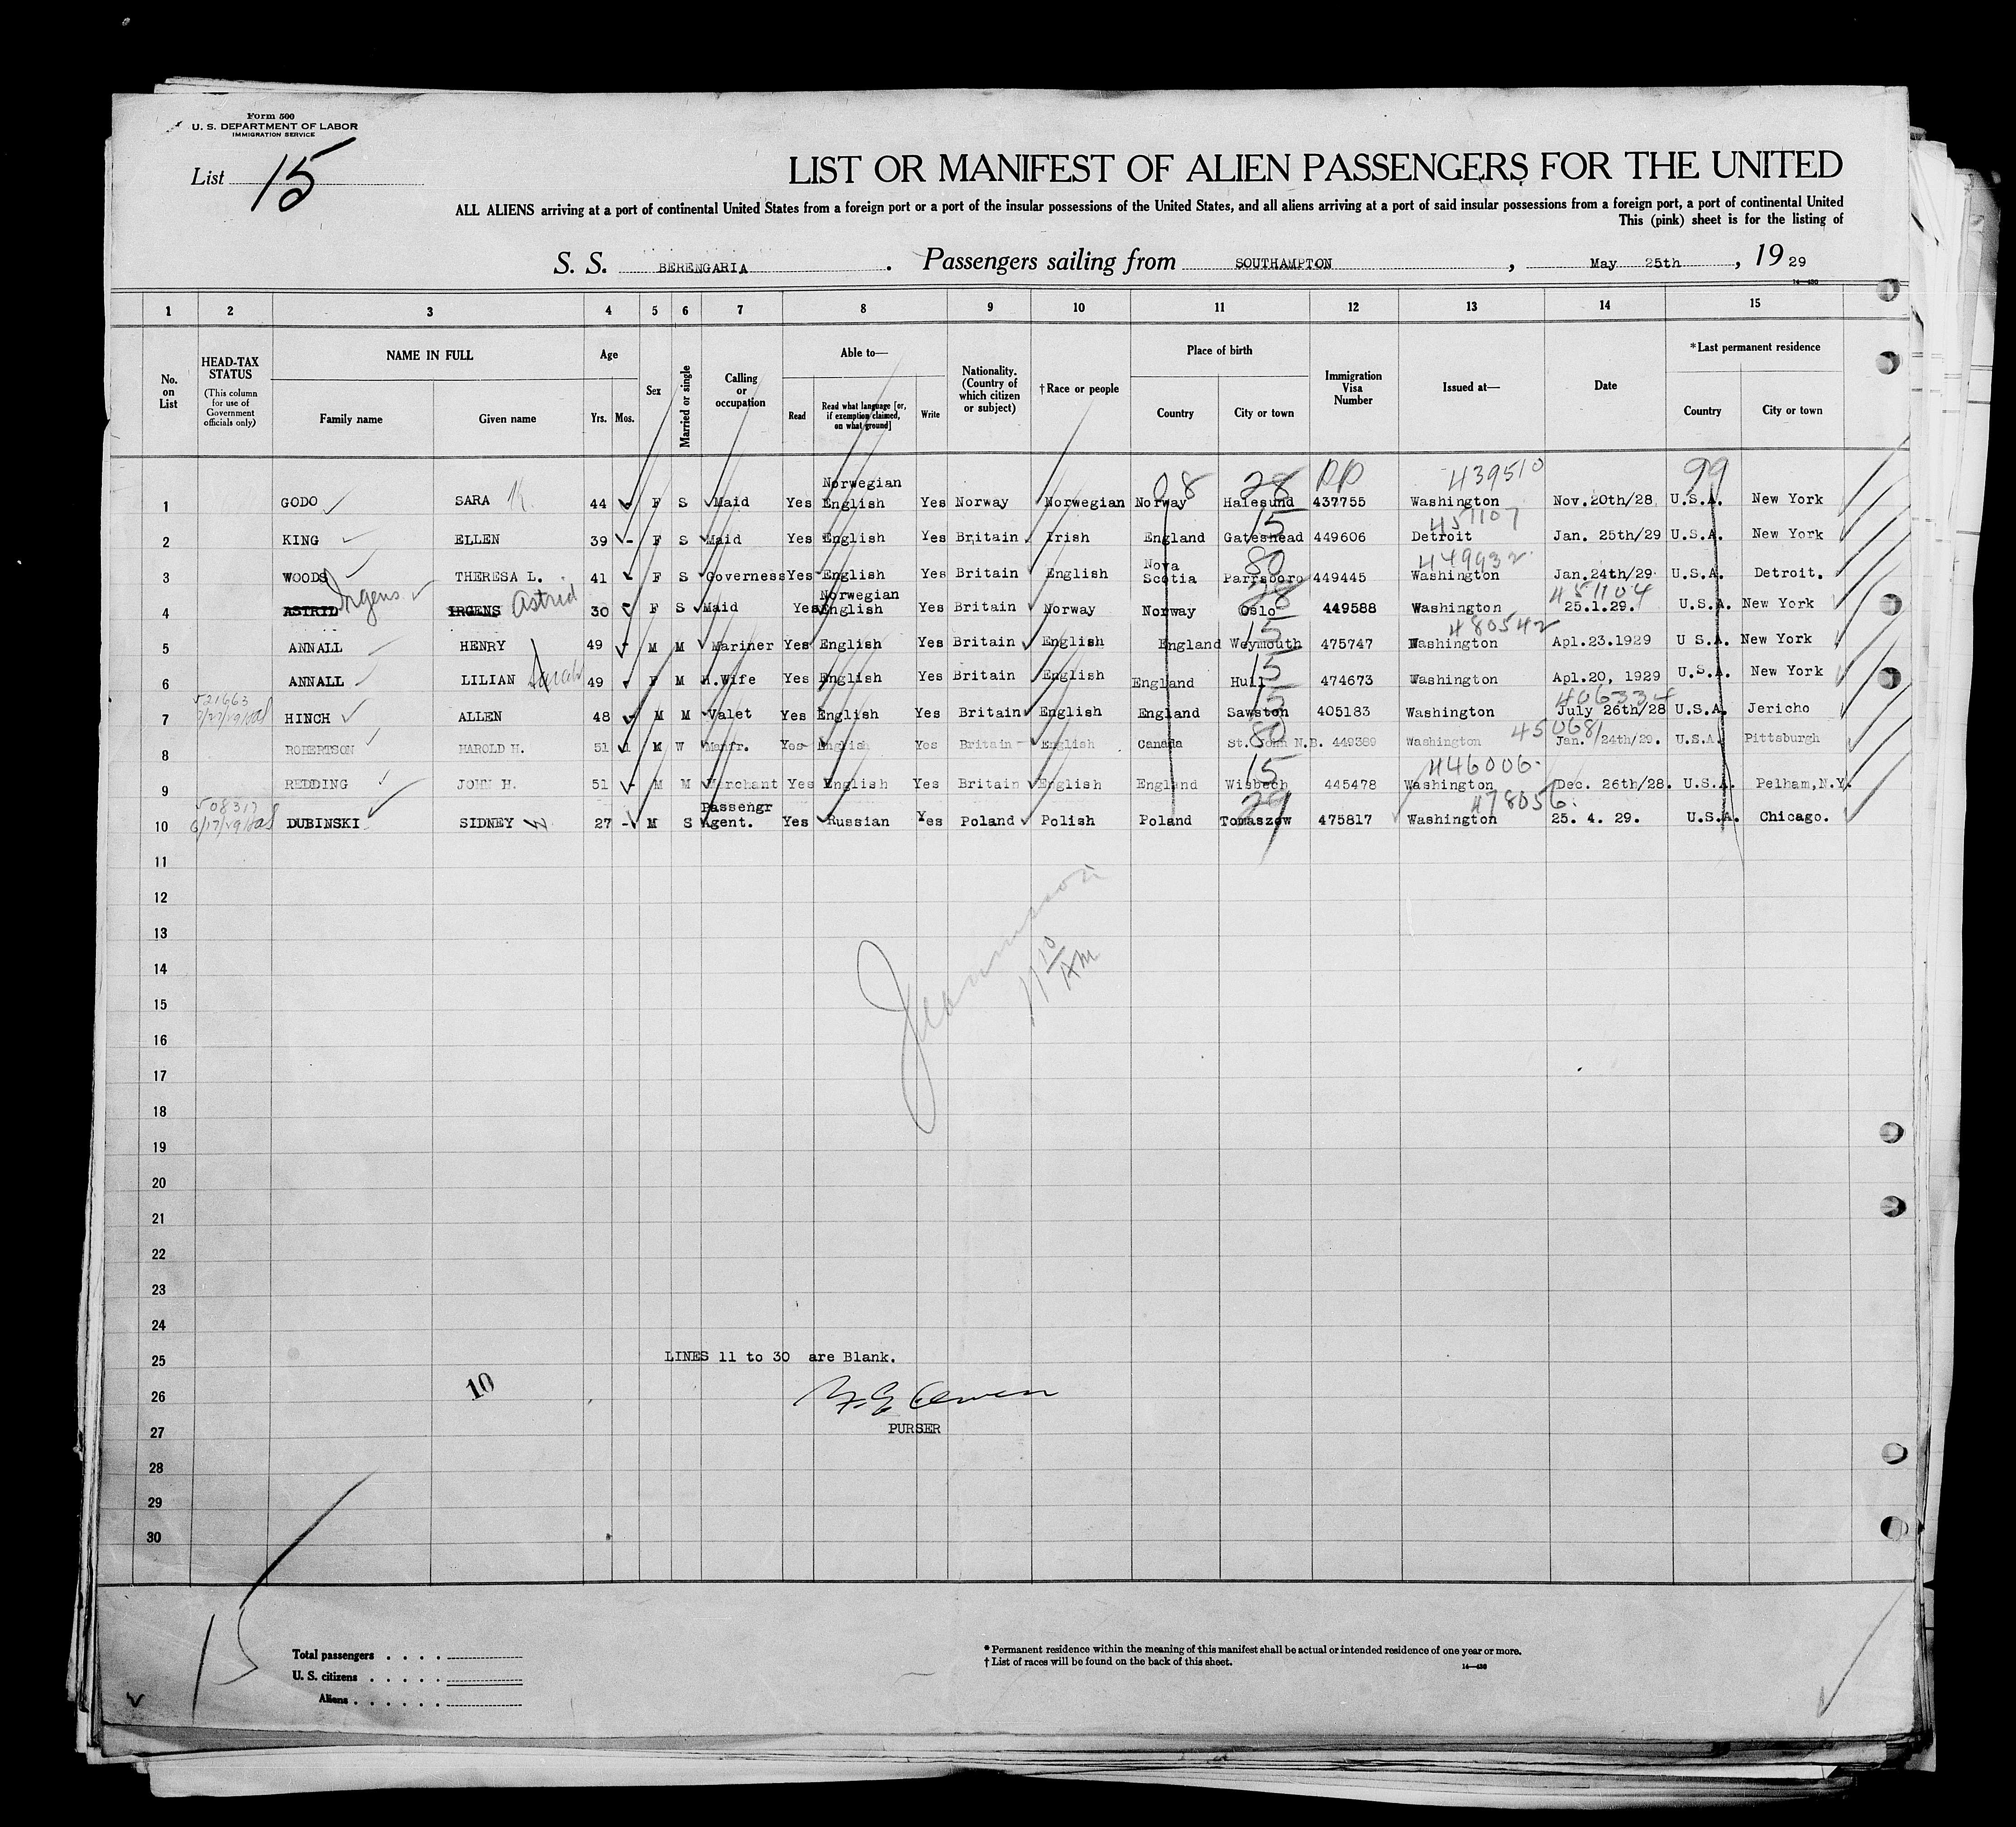 Form 500
U. S. DEPARTMENT OF LABOR
IMMIGRATION SERVICE
List 15
LIST OR MANIFEST OF ALIEN PASSENGERS FOR THE UNITED
ALL ALIENS arriving at a port of continental United States from a foreign port or a port of the insular possessions of the United States, and all aliens arriving at a port of said insular possessions from a foreign port, a port of continental United
This (pink) sheet is for the listing of
S. S. BERENGARIA . Passengers sailing from SOUTHAMPTON , May 25th , 19 29
14—430
1 2 3 4 5 6 7 8 9 10 11 12 13 14 15
No. on List
HEAD-TAX STATUS
(This column for use of Government officials only)
NAME IN FULL
Family name Given name
Age
Yrs. Mos.
Sex
Married or single
Calling or occupation
Able to—
Read Read what language [or, if exemption claimed, on what ground] Write
Nationality. (Country of which citizen or subject)
† Race or people
Place of birth
Country City or town
Immigration Visa Number
Issued at—
Date
* Last permanent residence
Country City or town
08 28 PP 439510 99
1 GODO SARA K. 44 F S Maid Yes Norwegian English Yes Norway Norwegian Norway Halesund 437755 Washington Nov.20th/28 U.S.A. New York
15 451107
2 KING ELLEN 39 - F S Maid Yes English Yes Britain Irish England Gateshead 449606 Detroit Jan. 25th/29 U.S.A. New York
80 449932
3 WOODS THERESA L. 41 - F S Governess Yes English Yes Britain English Nova Scotia Parrsboro 449445 Washington Jan.24th/29 U.S.A. Detroit.
28 451104
4 ASTRID Irgens IRGENS Astrid 30 F S Maid Yes Norwegian English Yes Britain Norway Norway Oslo 449588 Washington 25.1.29. U.S.A. New York
15 480542
5 ANNALL HENRY 49 - M M Mariner Yes English Yes Britain English England Weymouth 475747 Washington Apl.23.1929 U S.A. New York
15
6 ANNALL LILIAN Sarah 49 F M H.Wife Yes English Yes Britain English England Hull 474673 Washington Apl.20, 1929 U.S.A. New York
521663 15 406334
7 HINCH ALLEN 48 - M M Valet Yes English Yes Britain English England Sawston 405183 Washington July 26th/28 U.S.A. Jericho
80 450681
8 ROBERTSON HAROLD H. 51 M W Manfr. Yes English Yes Britain English Canada St. John N.B. 449389 Washington Jan. 24th/29. U.S.A. Pittsburgh
15 446006
9 REDDING JOHN H. 51 - M M Merchant Yes English Yes Britain English England Wisbech 445478 Washington Dec. 26th/28. U.S.A. Pelham,N.Y.
508317 29 478056
10 DUBINSKI SIDNEY 27 - M S Passengr Agent. Yes Russian Yes Poland Polish Poland Tomaszow 475817 Washington 25. 4. 29. U.S.A. Chicago.
11
12
13
11 10 AM
14
15
16
17
18
19
20
21
22
23
24
25 LINES 11 to 30 are Blank.
26 10
27 PURSER
28
29
30
15
Total passengers . . . .
U. S. citizens . . . . .
Aliens . . . . . .
* Permanent residence within the meaning of this manifest shall be actual or intended residence of one year or more.
† List of races will be found on the back of this sheet.
14—430